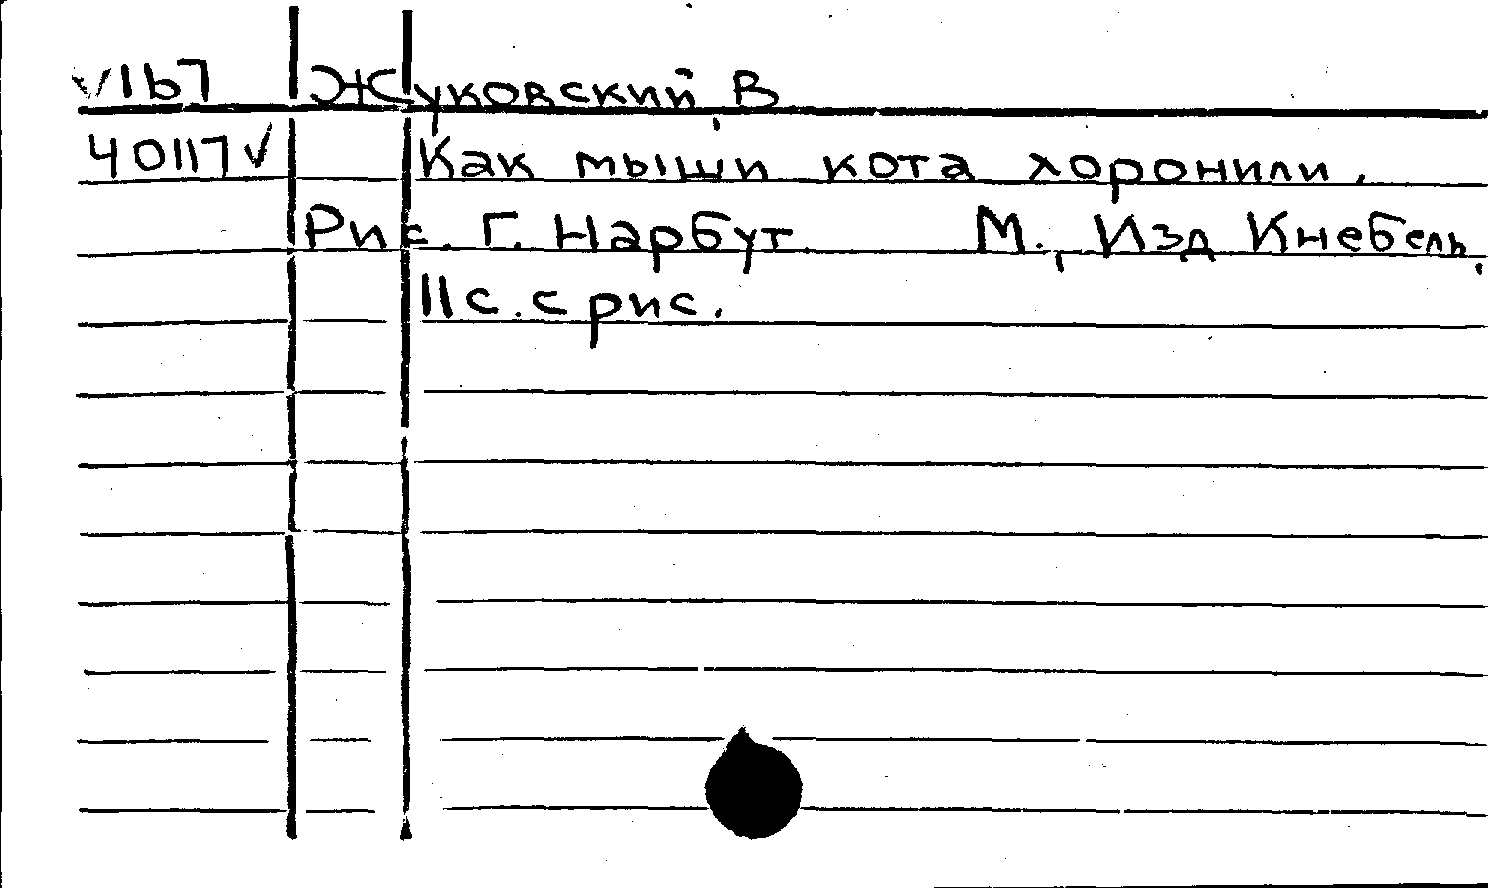 VIb7 Жуковский, В
40117 Как мыши кота хоронили.
Рис. Г. Нарбут М., Изд Кнебель,
11 с. с рис.